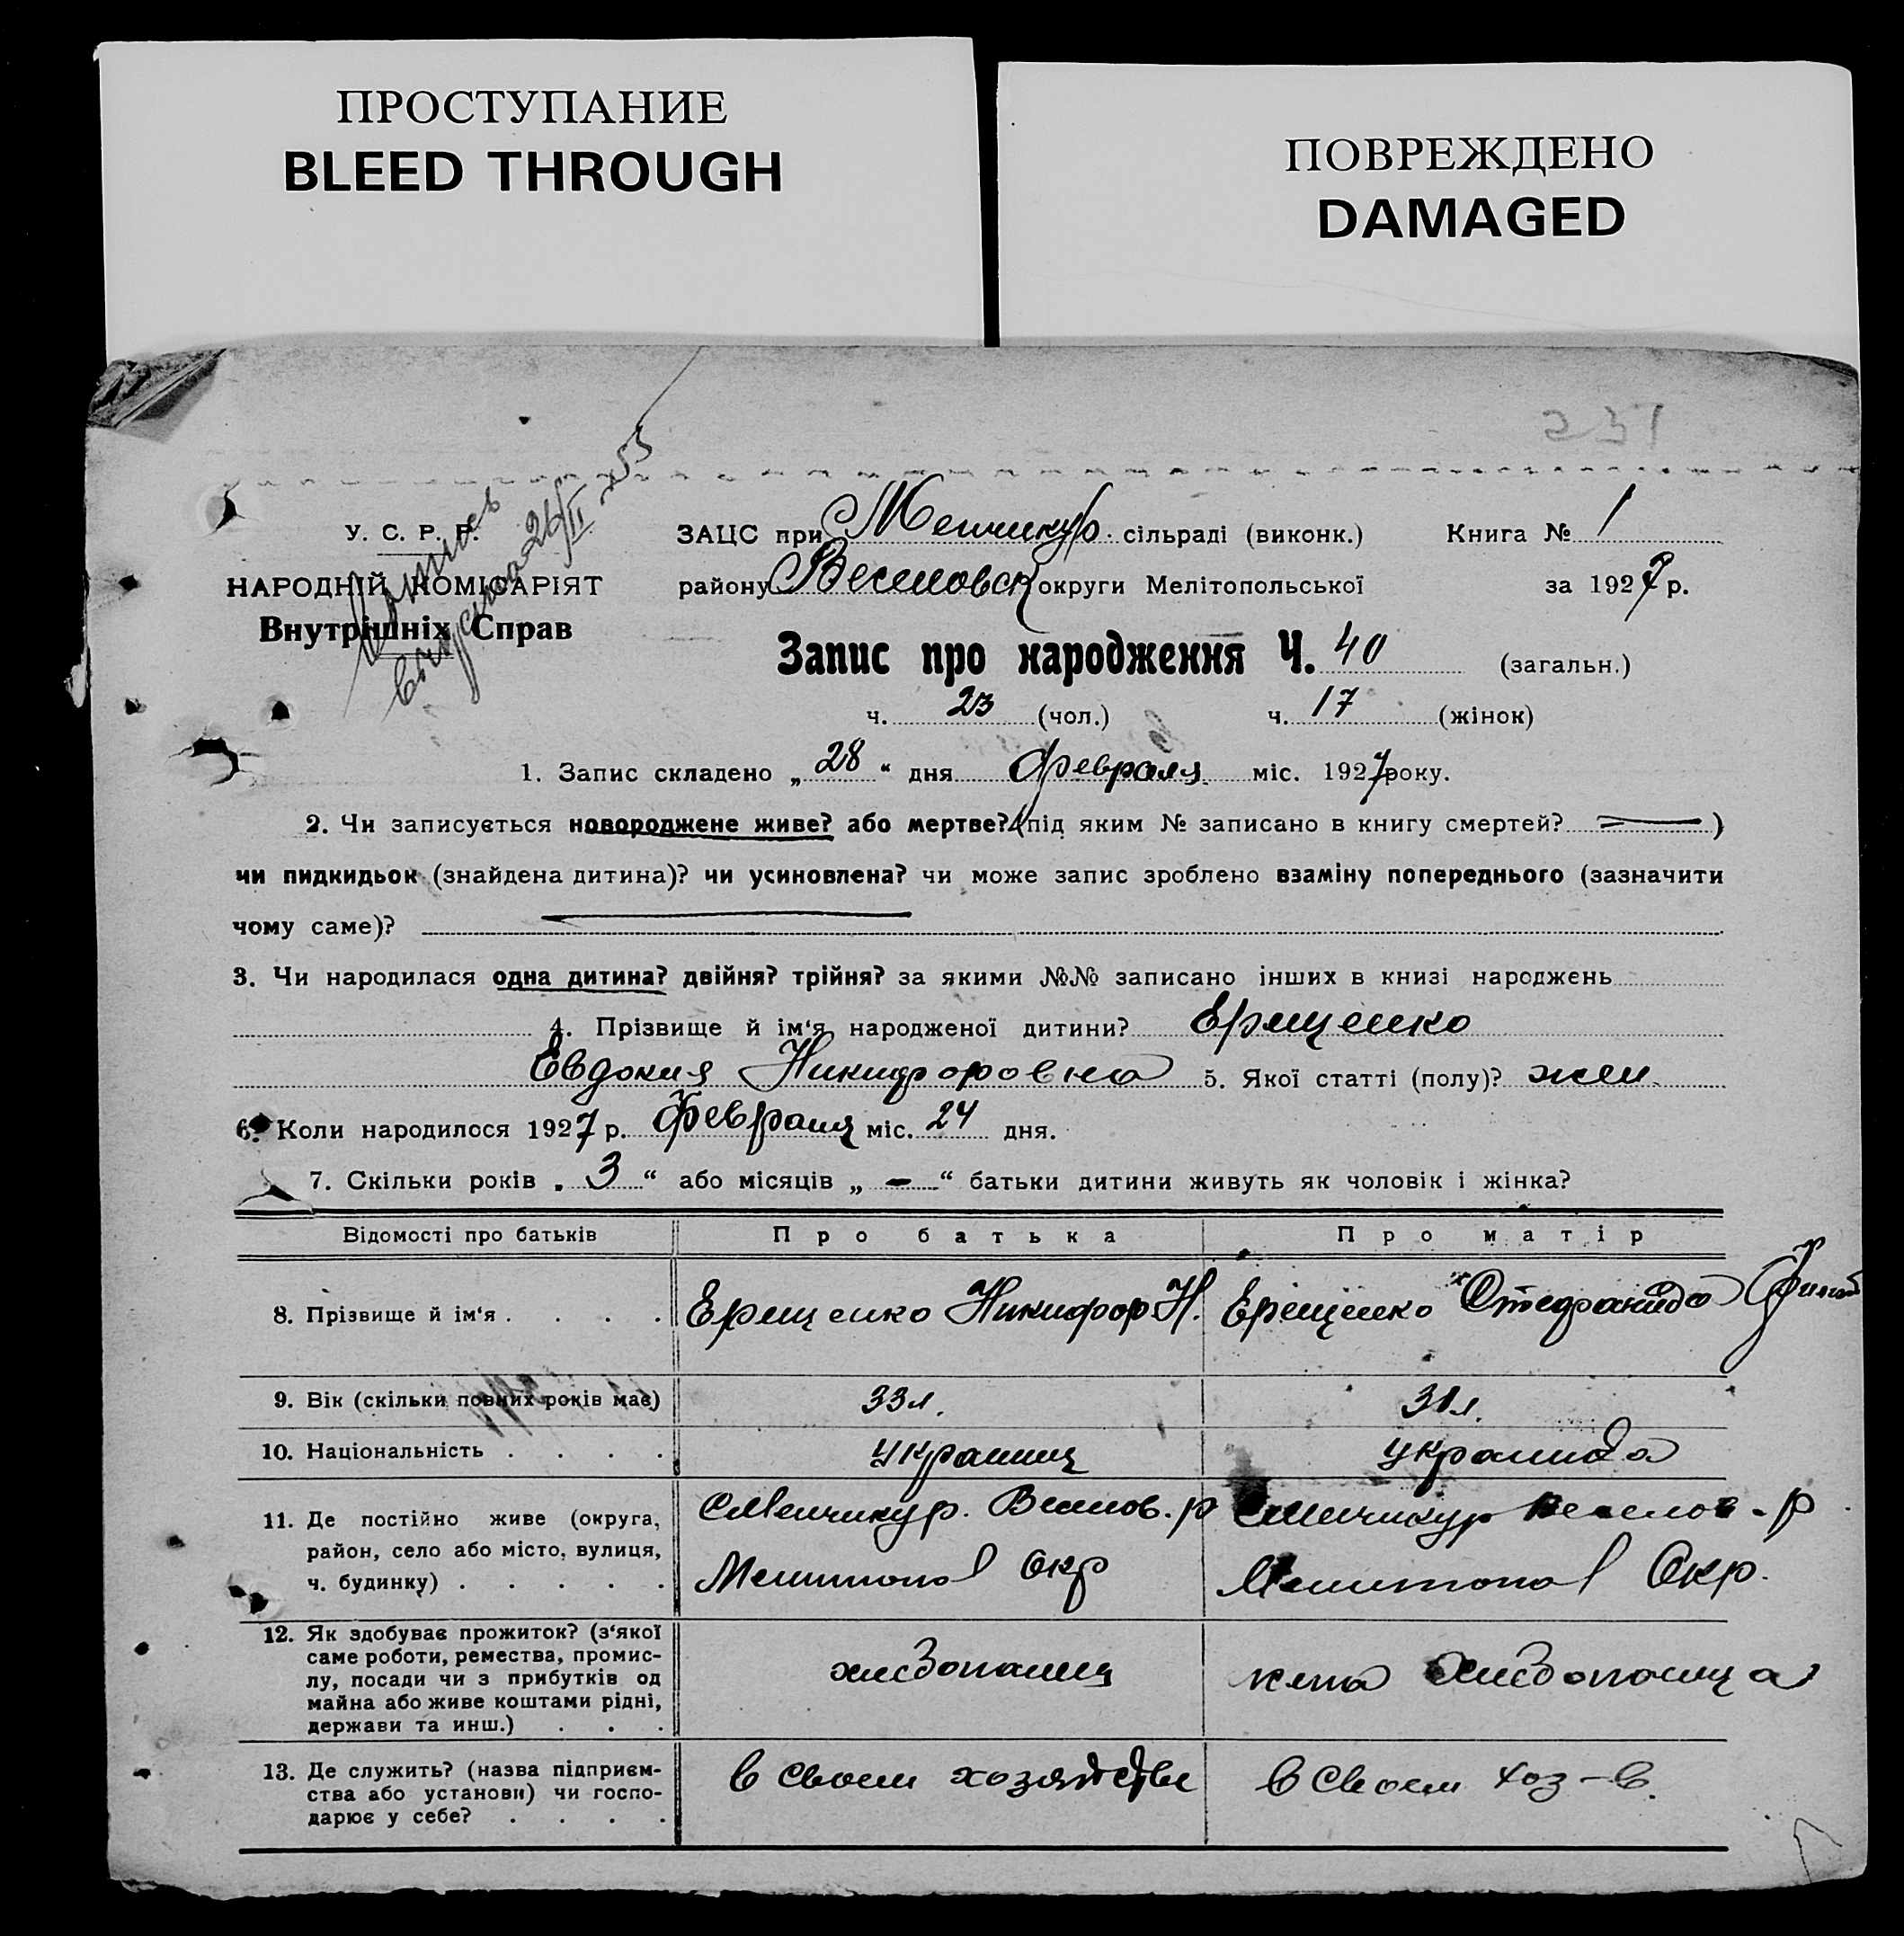 ПРОСТУПАНИЕ
BLEED THROUGH
ПОВРЕЖДЕНО
DAMAGED
У. С. Р. Р.
НАРОДНІЙ КОМІСАРІЯТ
Внутрішніх Справ
26/II 53
ЗАЦС при Менчикур. сільраді (виконк.) Книга № 1
району Веселовск округи Мелітопольської за 1927 р.
Запис про народження Ч. 40 (загальн.)
ч. 23 (чол.) ч. 17 (жінок)
1. Запис складено „ 28 “ дня Февраля міс. 1927 року.
2. Чи записується новороджене живе? або мертве? (під яким № записано в книгу смертей? )
чи пидкидьок (знайдена дитина)? чи усиновлена? чи може запис зроблено взаміну попереднього (зазначити
чому саме)?
3. Чи народилася одна дитина? двійня? трійня? за якими №№ записано інших в книзі народжень
4. Прізвище й ім‘я народженої дитини? Ерещенко
Евдокия Никифоровна 5. Якої статті (полу)? жен.
6. Коли народилося 1927 р. Февраля міс. 24 дня.
7. Скільки років „ 3 “ або місяців „ — “ батьки дитини живуть як чоловік і жінка?
Відомості про батьків Про батька Про матір
8. Прізвище й ім‘я . . . . Ерещенко Никифор Н. Ерещенко Стефанида
9. Вік (скільки повних років має) 33 л. 31 л.
10. Національність . . . . украинц украинка
11. Де постійно живе (округа,
район, село або місто, вулиця,
ч. будинку) . . . . .
с Менчикур. Веселов. р
Мелитопол Окр
с Менчикур Веселов - р
Мелитопол Окр.
12. Як здобуває прожиток? (з‘якої
саме роботи, ремества, промис-
лу, посади чи з прибутків од
майна або живе коштами рідні,
держави та инш.) . . .
хлебопашец
жена хлебопашца
13. Де служить? (назва підприєм-
ства або установи) чи госпо-
дарює у себе? . . . .
в своем хозяйстве
в своем хоз-в.